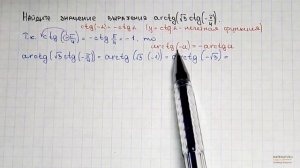 Найдите значение выражения arcctg(√3 ctg(-π/4))
ctg(-α) = -ctg α (y = ctg x - нечётная функция)
Т.к. ctg(-π/4) = -ctg π/4 = -1, то
arcctg(-a) = -arcctg a
arcctg(√3 ctg(-π/4)) = arcctg(√3 (-1)) = arcctg(-√3) =